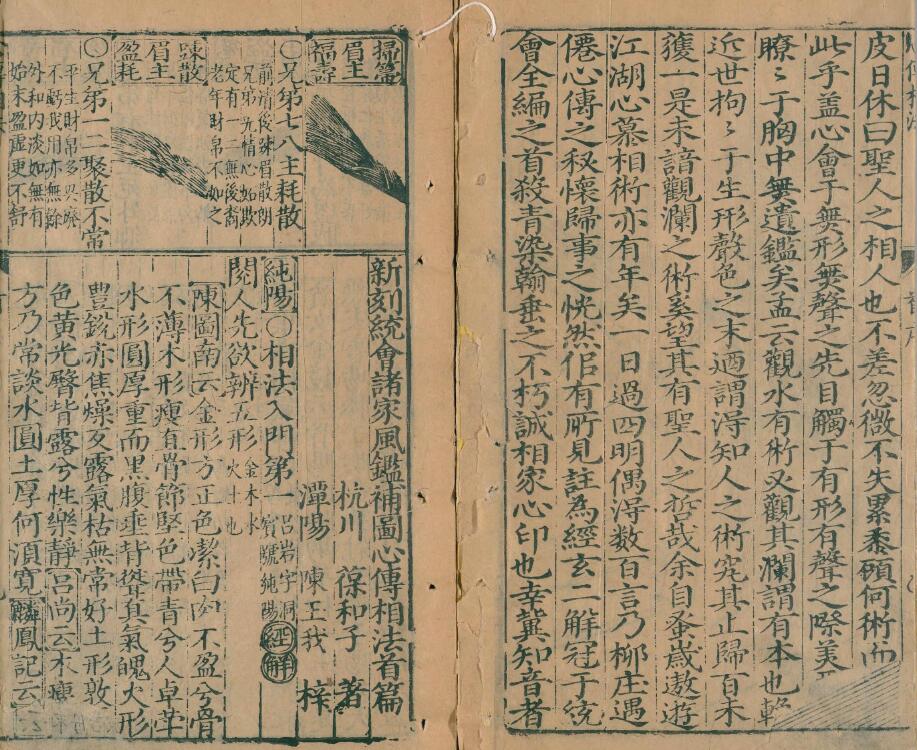 皮日休曰聖人之相人也不差忽微不失累黍顧何術而
此乎盖心會于無形無聲之先目觸于有形有聲之際美
瞭〻于胸中無遺鑑矣孟云觀水有術必觀其瀾謂有本也
近世拘〻于生形聲色之末迺謂淂知人之術究其止歸百未
獲一是未諳觀瀾之術奚望其有聖人之哲哉余自蚤歲遨遊
江湖心慕相術亦有年矣一日過四明偶淂数百言乃柳庄遇
僊心傳之秘懷歸事之恍然佀有所見註為經玄二解冠于統
會全編之首殺青染翰垂之不朽誠相家心印也幸冀知音者
掃箒
眉主
福壽
〇兄弟七八主耗散
前清後踈眉散朗
兄弟先情心始欺
定有一二無後裔
老年財帛不如之
踈散
眉主
盈耗
〇兄弟一二聚散不常
平生財帛多
不虧我用亦無餘
外和内淡如無有
始末盈虛更不舒
新刻統會諸家風鑑補圖心傳相法首篇
杭川 葆和子 著
潭陽 陳王我 梓
純陽〇相法入門第一 呂岩字洞賓號純陽 經解
閱人先欲辨五形 金木水火土也
陳圖南云金形方正色潔白肉不盈兮骨
不薄木形瘦直骨節堅色帶青兮人卓犖
水形圓厚重而黑腹垂背聳真氣魄火形
豊銳赤焦燥反露氣枯無常好土形敦
色黄光臀背露兮性樂靜呂尚云木瘦
方乃常談水圓土厚何湏寛麟鳳記云